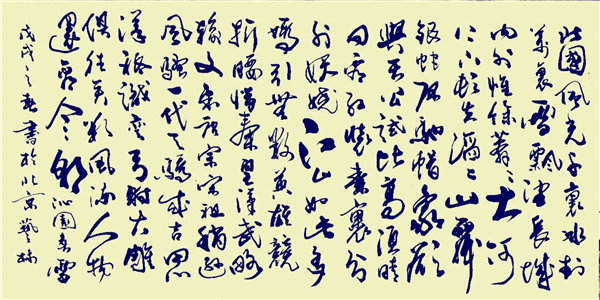 北國風光千裏冰封
萬裏雪飄望長城
内外惟餘莽〻大河
上下頓失滔〻山舞
銀蛇原馳蠟象欲
與天公試比高須晴
日看紅裝素裹分
外妖嬈江山如此多
嬌引無數英雄競
折腰惜秦皇漢武略
輸文采唐宗宋祖稍遜
風騷一代天驕成吉思
汗祗識彎弓射大雕
俱往矣數風流人物
還看今朝 沁園春雪
戊戌之春書於北京藝林